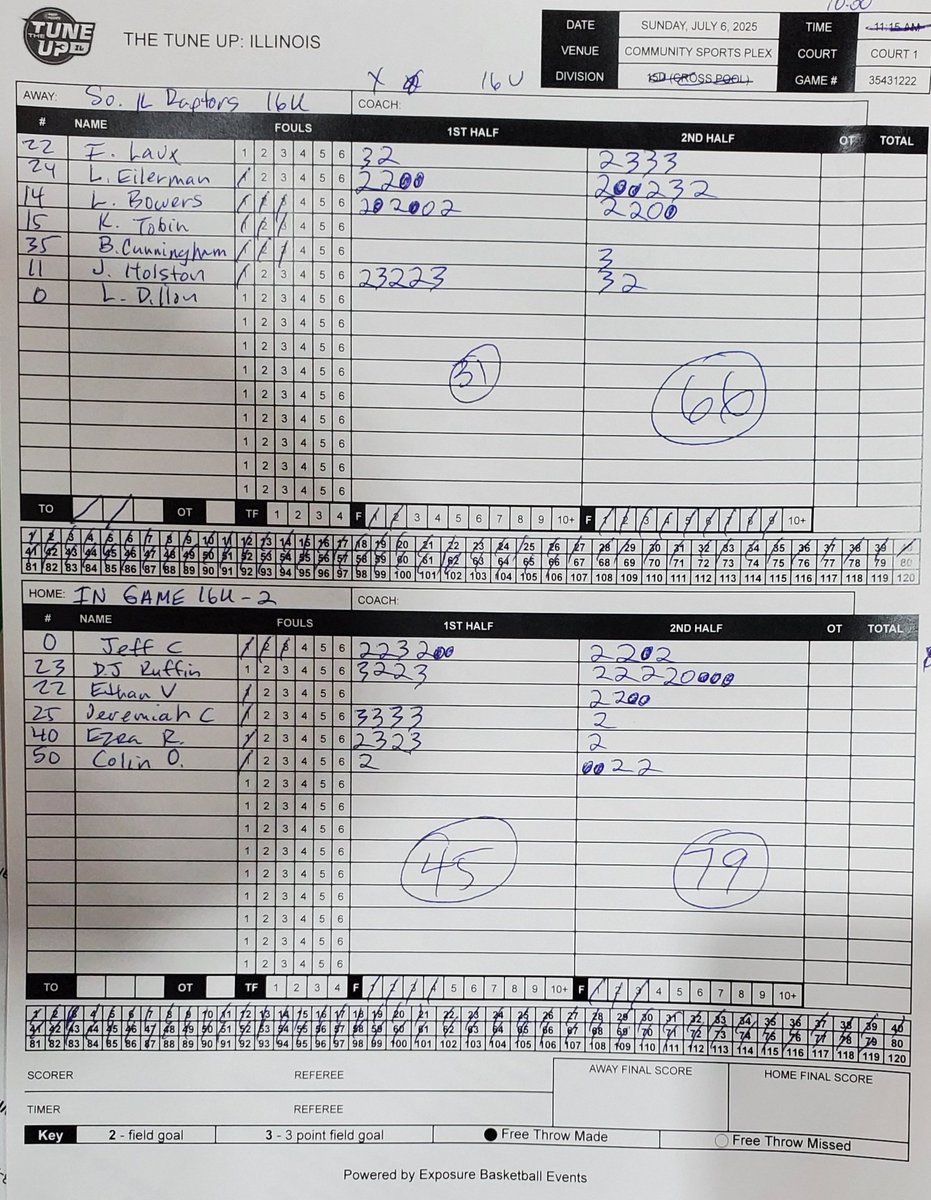 10:00
THE TUNE UP IL
THE TUNE UP: ILLINOIS
DATE SUNDAY, JULY 6, 2025 TIME 11:15 AM
VENUE COMMUNITY SPORTS PLEX COURT COURT 1
DIVISION 15D (CROSS POOL) GAME # 35431222
X 16U
AWAY: So. IL Raptors 16U COACH:
# NAME FOULS 1ST HALF 2ND HALF OT TOTAL
22 E. Laux 1 2 3 4 5 6 32 2333
24 L. Eilerman 1 2 3 4 5 6 2200 200232
14 L. Bowers 1 2 3 4 5 6 202002 2200
15 K. Tobin 1 2 3 4 5 6
35 B. Cunningham 1 2 3 4 5 6 3
11 J. Holston 1 2 3 4 5 6 23223 32
0 L. Dillon 1 2 3 4 5 6
1 2 3 4 5 6
1 2 3 4 5 6
1 2 3 4 5 6
31 66
1 2 3 4 5 6
1 2 3 4 5 6
1 2 3 4 5 6
1 2 3 4 5 6
1 2 3 4 5 6
TO OT TF 1 2 3 4 F 1 2 3 4 5 6 7 8 9 10+ F 1 2 3 4 5 6 7 8 9 10+
1 2 3 4 5 6 7 8 9 10 11 12 13 14 15 16 17 18 19 20 21 22 23 24 25 26 27 28 29 30 31 32 33 34 35 36 37 38 39 40
41 42 43 44 45 46 47 48 49 50 51 52 53 54 55 56 57 58 59 60 61 62 63 64 65 66 67 68 69 70 71 72 73 74 75 76 77 78 79 80
81 82 83 84 85 86 87 88 89 90 91 92 93 94 95 96 97 98 99 100 101 102 103 104 105 106 107 108 109 110 111 112 113 114 115 116 117 118 119 120
HOME: IN GAME 16U-2 COACH:
# NAME FOULS 1ST HALF 2ND HALF OT TOTAL
0 Jeff C 1 2 3 4 5 6 223200 2202
23 DJ Ruffin 1 2 3 4 5 6 3223 22220000
22 Ethan V 1 2 3 4 5 6 2200
25 Jeremiah C 1 2 3 4 5 6 3333 2
40 Ezra R. 1 2 3 4 5 6 2323 2
50 Colin O. 1 2 3 4 5 6 2 0022
1 2 3 4 5 6
1 2 3 4 5 6
1 2 3 4 5 6
1 2 3 4 5 6
45 79
1 2 3 4 5 6
1 2 3 4 5 6
1 2 3 4 5 6
1 2 3 4 5 6
1 2 3 4 5 6
TO OT TF 1 2 3 4 F 1 2 3 4 5 6 7 8 9 10+ F 1 2 3 4 5 6 7 8 9 10+
1 2 3 4 5 6 7 8 9 10 11 12 13 14 15 16 17 18 19 20 21 22 23 24 25 26 27 28 29 30 31 32 33 34 35 36 37 38 39 40
41 42 43 44 45 46 47 48 49 50 51 52 53 54 55 56 57 58 59 60 61 62 63 64 65 66 67 68 69 70 71 72 73 74 75 76 77 78 79 80
81 82 83 84 85 86 87 88 89 90 91 92 93 94 95 96 97 98 99 100 101 102 103 104 105 106 107 108 109 110 111 112 113 114 115 116 117 118 119 120
SCORER REFEREE AWAY FINAL SCORE HOME FINAL SCORE
TIMER REFEREE
Key 2 - field goal 3 - 3 point field goal Free Throw Made Free Throw Missed
Powered by Exposure Basketball Events